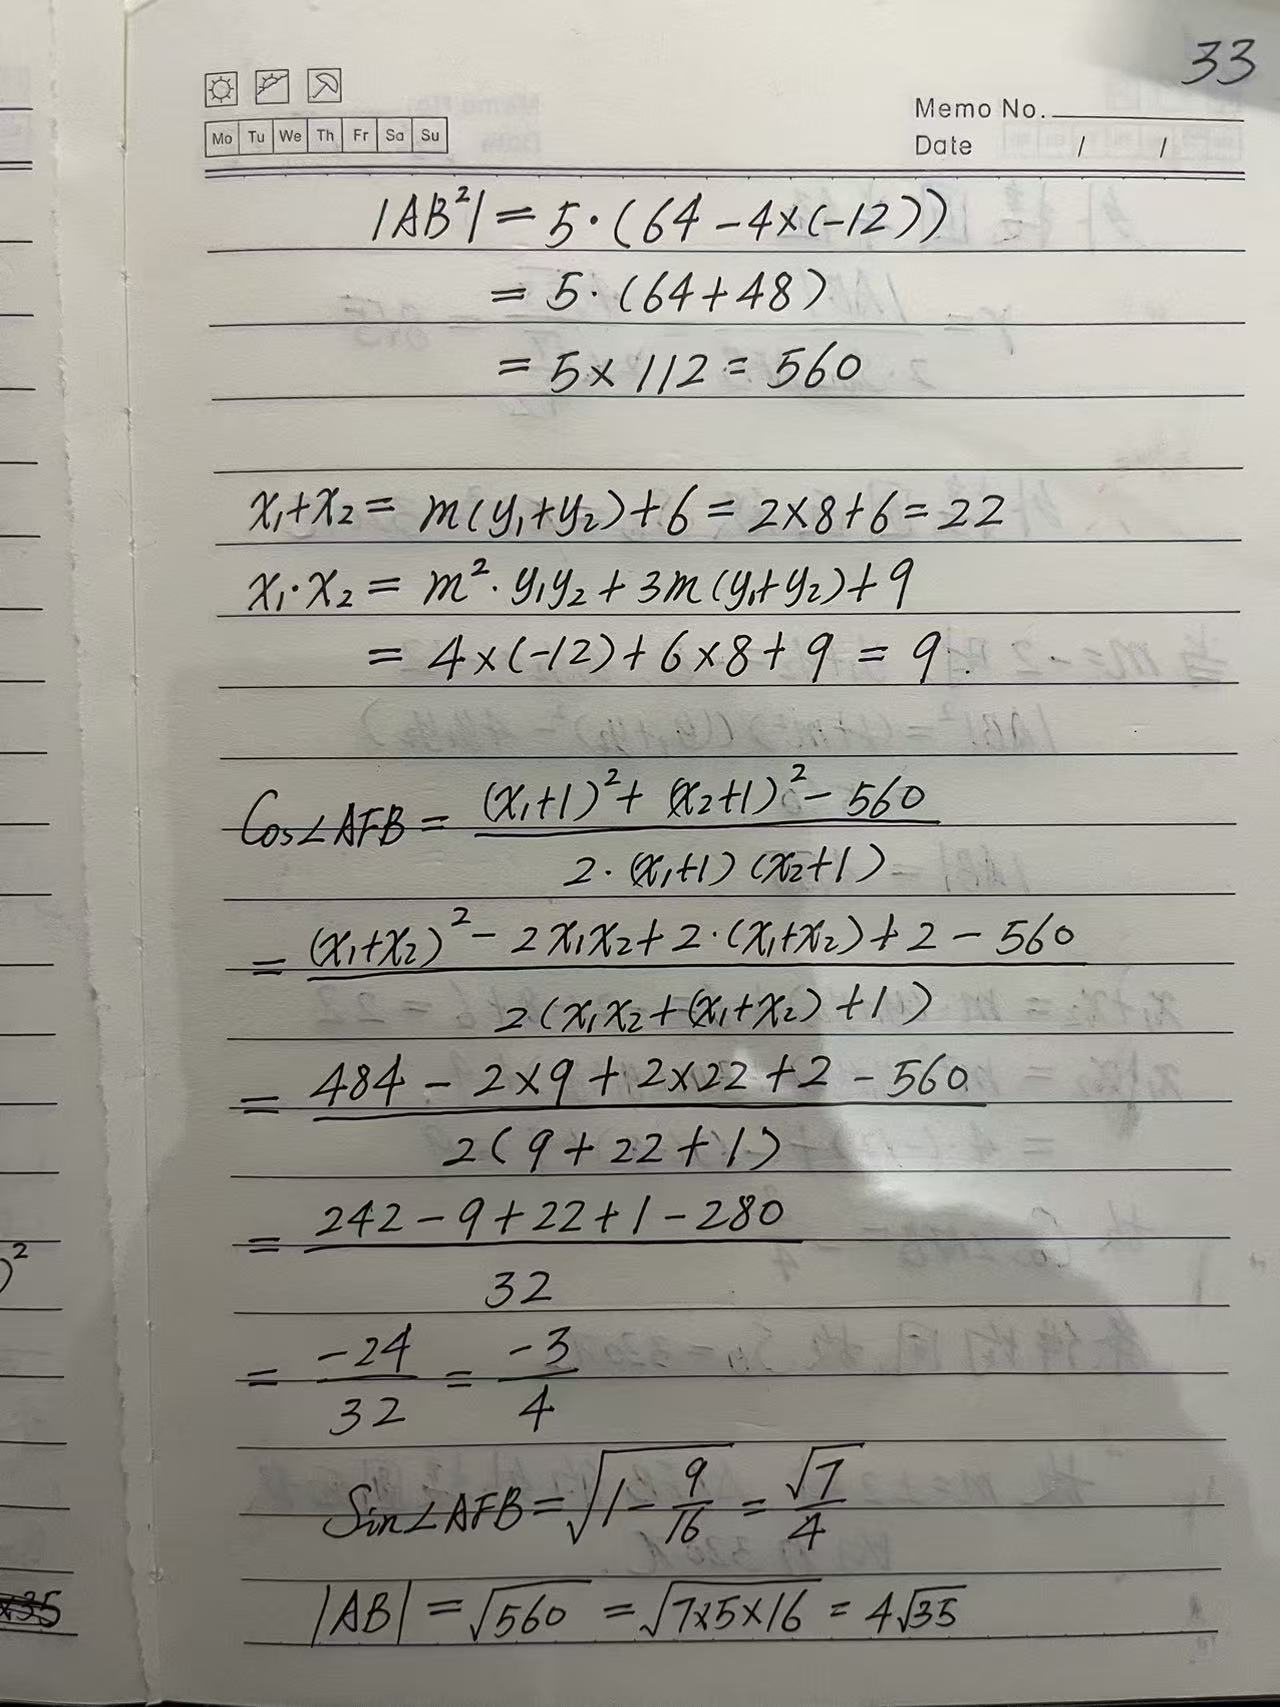 33
Memo No.
Mo Tu We Th Fr Sa Su
Date / /
|AB²| = 5·(64-4×(-12))
= 5·(64+48)
= 5×112 = 560
x₁+x₂ = m(y₁+y₂)+6 = 2×8+6 = 22
x₁·x₂ = m²·y₁y₂+3m(y₁+y₂)+9
= 4×(-12)+6×8+9 = 9.
Cos∠AFB = \frac{(x₁+1)²+(x₂+1)²-560}{2·(x₁+1)(x₂+1)}
= \frac{(x₁+x₂)²-2x₁x₂+2·(x₁+x₂)+2-560}{2(x₁x₂+(x₁+x₂)+1)}
= \frac{484-2×9+2×22+2-560}{2(9+22+1)}
= \frac{242-9+22+1-280}{32}
= \frac{-24}{32} = \frac{-3}{4}
Sin∠AFB = \sqrt{1-\frac{9}{16}} = \frac{\sqrt{7}}{4}
|AB| = \sqrt{560} = \sqrt{7×5×16} = 4\sqrt{35}
)²